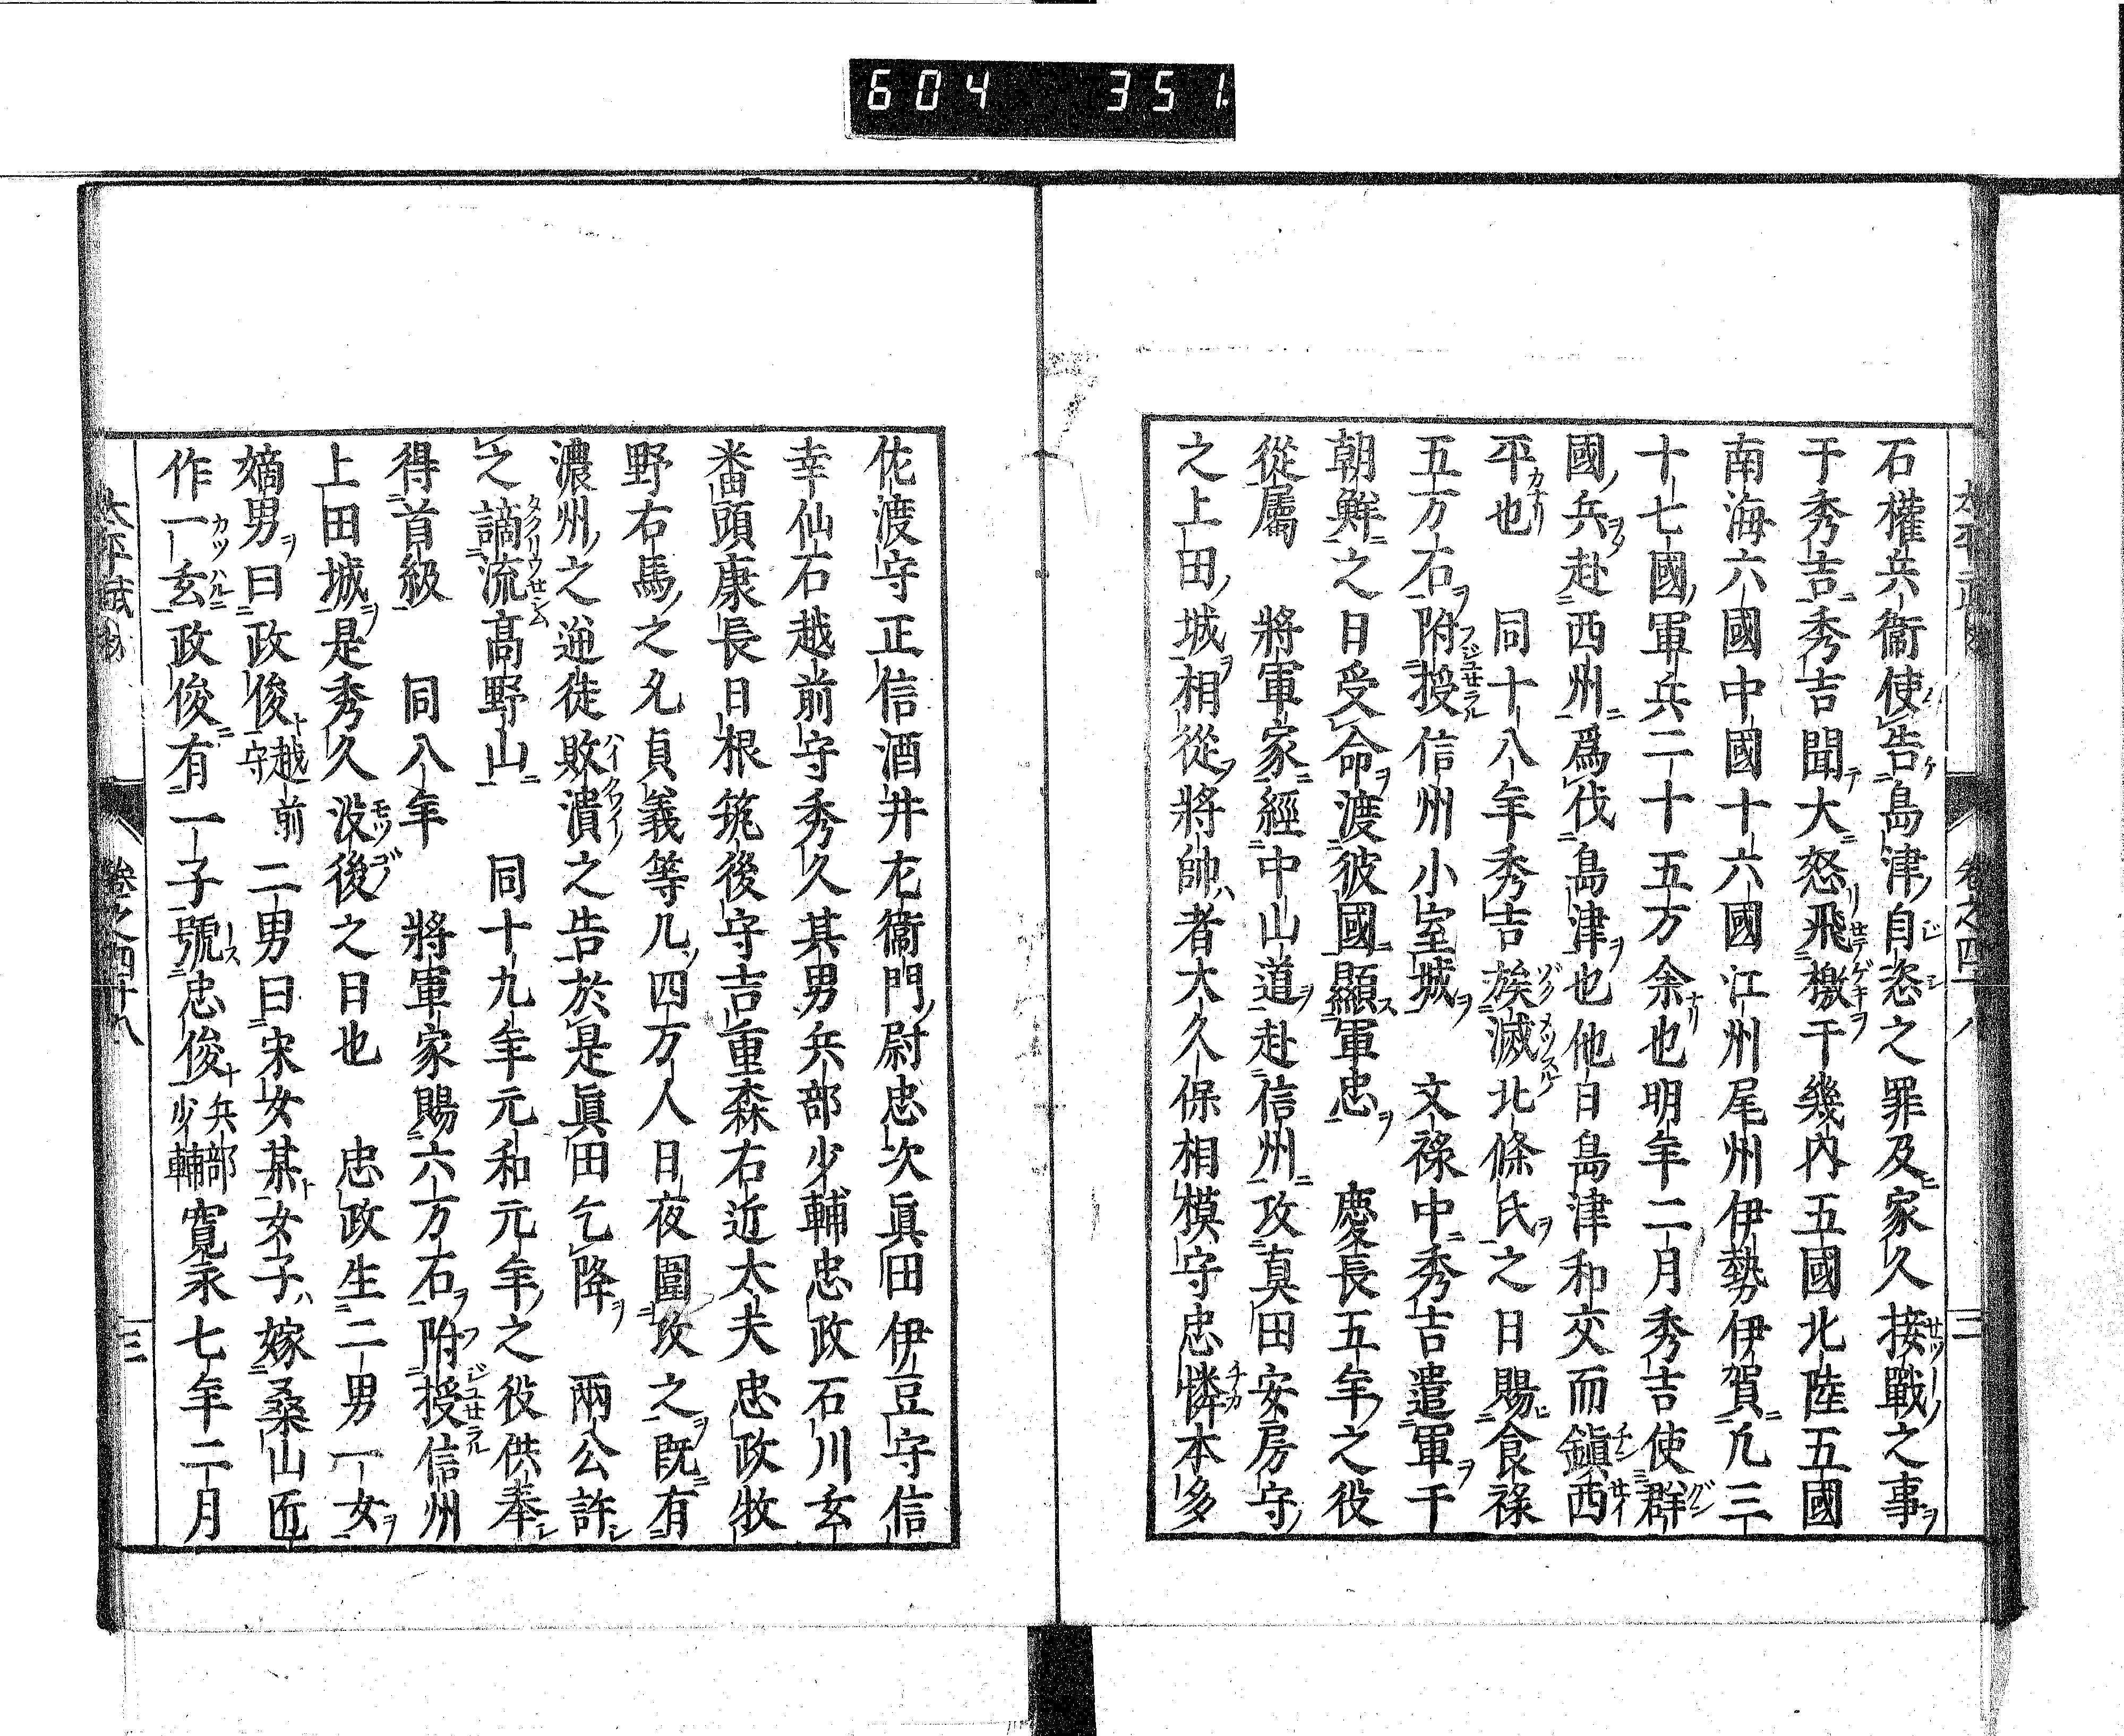 604 351
石權兵衞使告島津自恣之罪及家久接戰之事
于秀吉秀吉聞大怒飛檄于幾内五國北陸五國
南海六國中國十六國江州尾州伊勢伊賀凢三
十七國軍兵二十五万余也明年二月秀吉使群
國兵赴西州爲伐島津也他日島津和交而鎭西
平也 同十八年秀吉族滅北條氏之日賜食禄
五万石附授信州小室城 文禄中秀吉遣軍于
朝鮮之日受命渡彼國顯軍忠 慶長五年之役
從屬 將軍家經中山道赴信州攻真田安房守
之上田城相從將帥者大久保相模守忠憐本多
佐渡守正信酒井左衞門尉忠次眞田伊豆守信
幸仙石越前守秀久其男兵部少輔忠政石川玄
畨頭康長日根筑後守吉重森右近太夫忠政牧
野右馬之允貞義等凡四万人日夜圍攻之既有
濃州之逆徒敗潰之告於是眞田乞降 兩公許
之謫流髙野山 同十九年元和元年之役供奉
得首級 同八年 將軍家賜六万石附授信州
上田城是秀久没後之日也 忠政生二男一女
嫡男曰政俊越前守二男曰宋女某女子嫁桑山匠
作一玄政俊有一子號忠俊兵部少輔寛永七年二月
卷之四十八
三